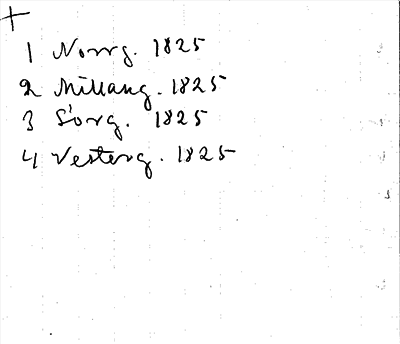 +
1 Norrg. 1825
2 Mellang. 1825
3 Sörg. 1825
4 Vesterg. 1825